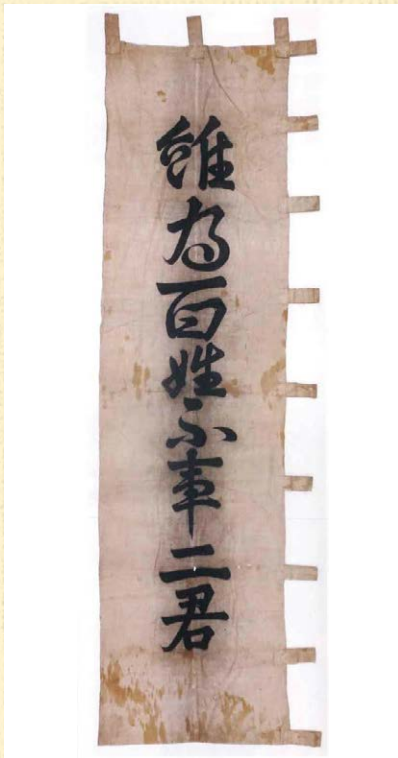 雖為百姓不事二君